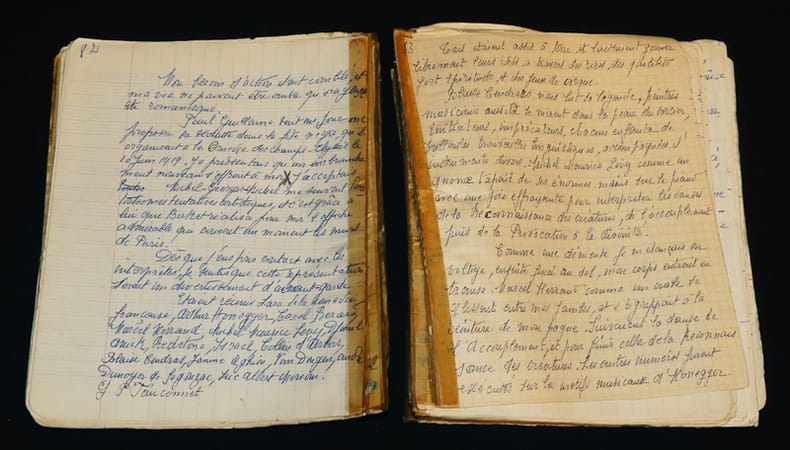 82
Mon besoin d'action était comblé, et
ma vie ne pouvait être orale qu'oragé
et romanesque.
Paul Guillaume vint un jour me
proposer la vedette dans la fête nègre, qu'il
organisait à la Comédie des Champs-Elysées le
10 Juin 1919. Y présentant qu'un embranche
ment nouveau s'offrait à moi X j'acceptais.
Michel-Georges-Michel me suivait
dans mes tentatives artistiques, et c'est grâce à
lui que Barket réalisa pour moi l'affiche
admirable qui couvrit un moment les murs
de Paris.
Dès que j'eus pris contact avec les
interprètes, je sentis que cette représentation
serait un divertissement d'avant-garde
Etaient réunis Lara de la Comédie
française, Arthur Honegger, Carol Berard,
Marcel Herrand, Michel Maurice Levy, Daniel
Redstone, Israel, Colin d'Arbois,
Blaise Cendras, Janine Aghion, Van Dongen, André
Dunoyer de Segonzac, Luc Albert Moreau.
et P Fauconnet
83
Tous étaient assis à terre et laissaient germer
librement leurs idées à travers des rires, des quolibets
fort spirituels, et des jeux de cirque.
Blaise Cendras nous lut de légende, peintres
musiciens aussitôt se mirent dans la peau du sorcier,
imitateurs, improvisateurs, chacun enfanta de
brillantes trouvailles linguistiques, accompagnées d'
instruments divers. Michel Maurice Levy comme un
gnome tapait de ses énormes mains sur le piano
avec une force effrayante pour interpréter les danses
de la Reconnaissance des créatures, de l'accouplement
puis de la Provocation à la divinité.
Comme une démente je m'élançais en
voltige, ensuite fixée au sol, mon corps entrait en
transe. Marcel Herrand comme un crabe se
glissait entre mes jambes, et s'agrippait à la
ceinture de mon pagne. Suivaient la danse de
l'Accouplement, et pour finir celle de la Reconnais
sance des créatures. Les autres numéros furent
exécutés sur les motifs musicaux d'Honegger.